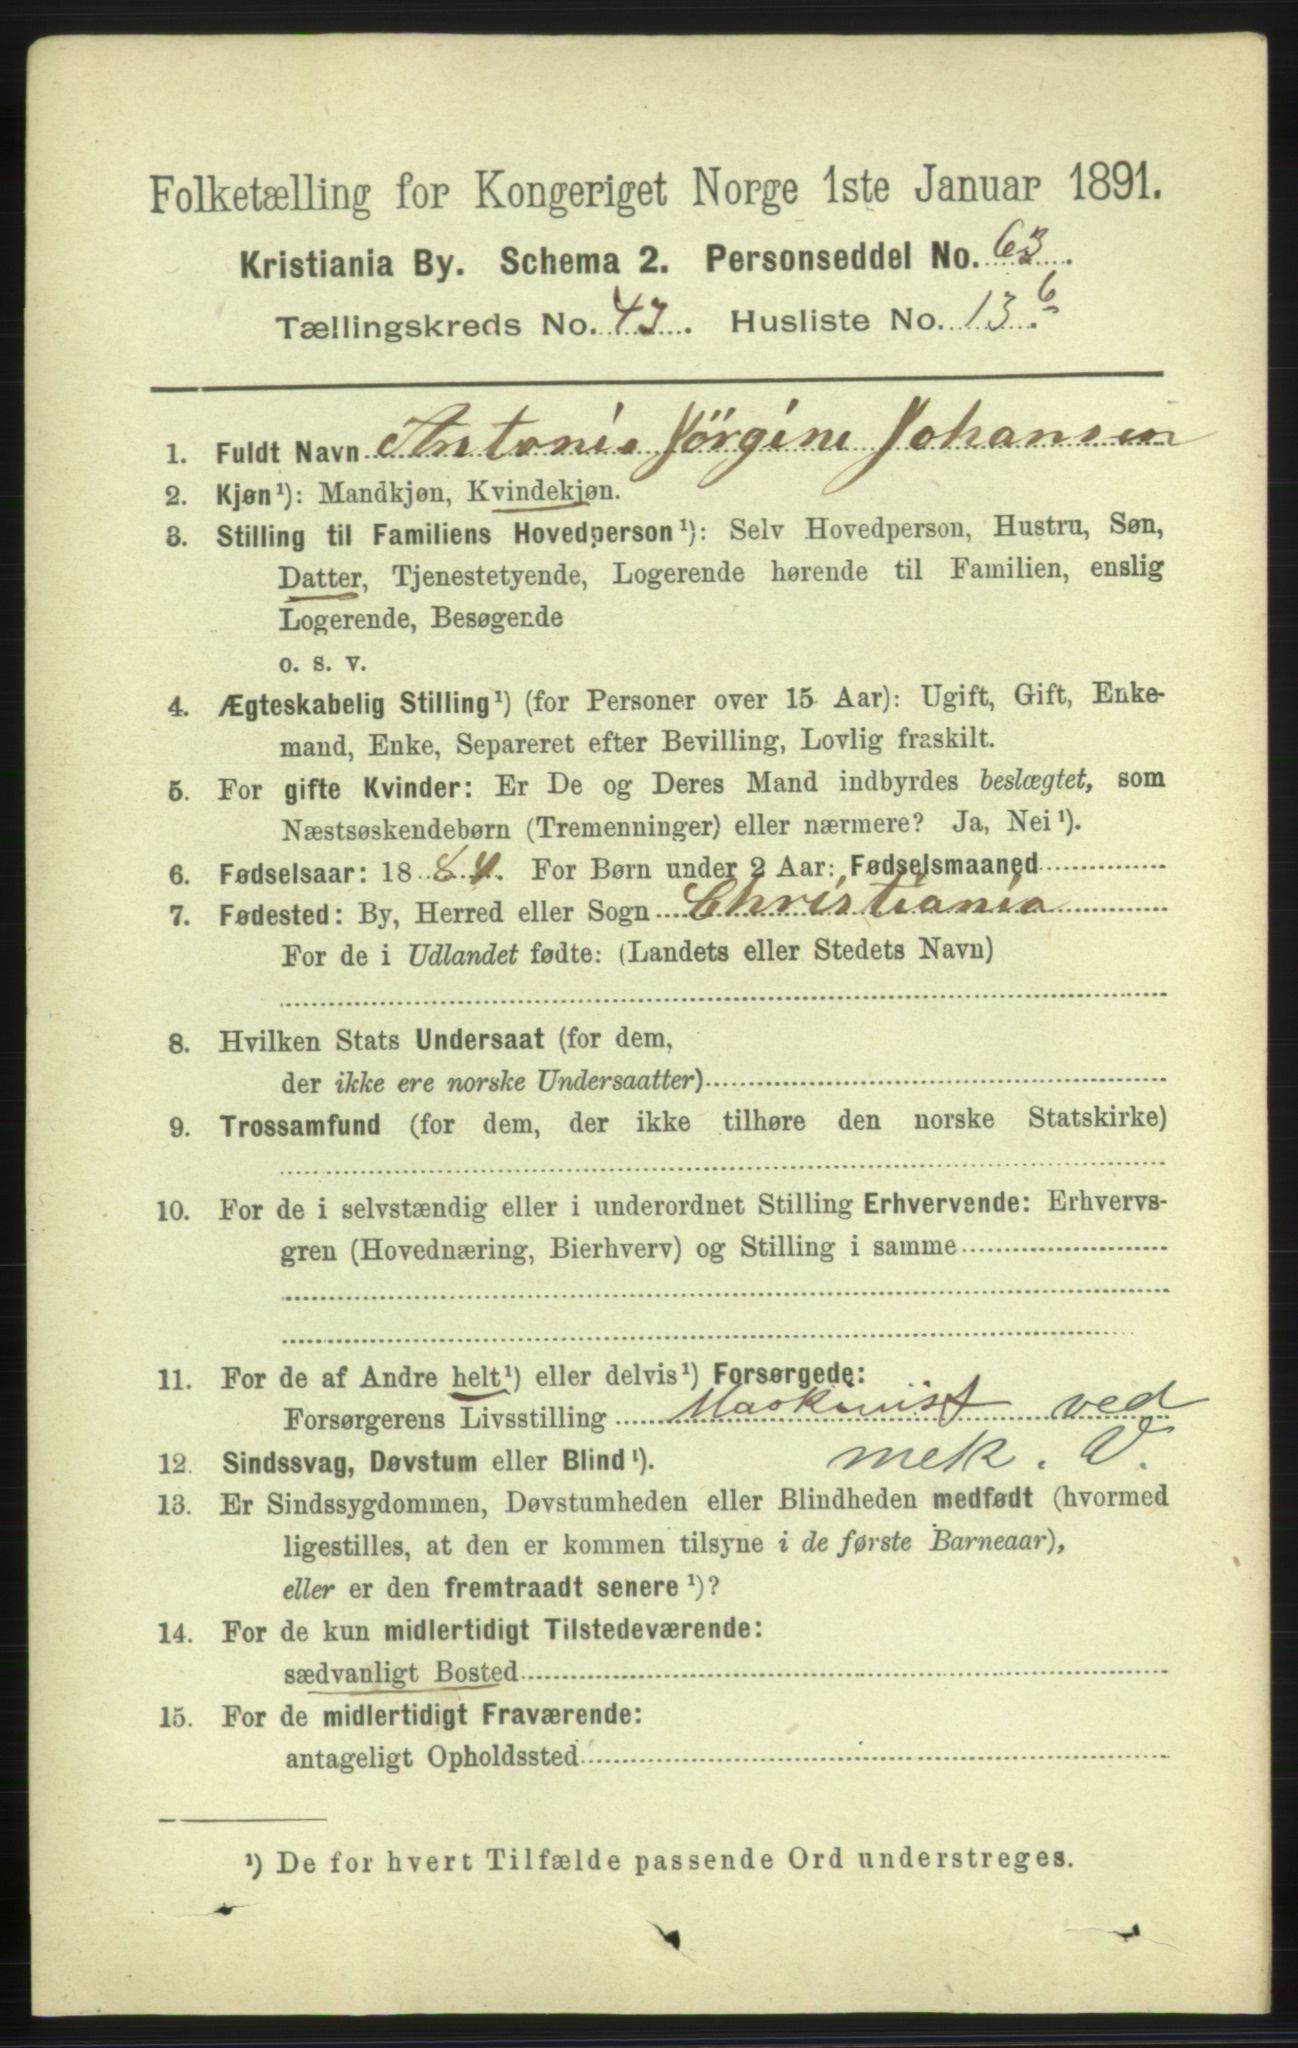 Folketælling for Kongeriget Norge 1ste Januar 1891.
Kristiania By. Schema 2. Personseddel No. 63.
Tællingskreds No. 47. Husliste No. 13 6.
1. Fuldt Navn Antonie Jörgine Johansen
2. Kjøn¹): Mandkjøn, Kvindekjøn.
3. Stilling til Familiens Hovedperson¹): Selv Hovedperson, Hustru, Søn,
Datter, Tjenestetyende, Logerende hørende til Familien, enslig
Logerende, Besøgende
o. s. v.
4. Ægteskabelig Stilling¹) (for Personer over 15 Aar): Ugift, Gift, Enke-
mand, Enke, Separeret efter Bevilling, Lovlig fraskilt.
5. For gifte Kvinder: Er De og Deres Mand indbyrdes beslægtet, som
Næstsøskendebørn (Tremenninger) eller nærmere? Ja, Nei¹).
6. Fødselsaar: 1884. For Børn under 2 Aar: Fødselsmaaned
7. Fødested: By, Herred eller Sogn Christiania
For de i Udlandet fødte: (Landets eller Stedets Navn)
8. Hvilken Stats Undersaat (for dem,
der ikke ere norske Undersaatter)
9. Trossamfund (for dem, der ikke tilhøre den norske Statskirke)
10. For de i selvstændig eller i underordnet Stilling Erhvervende: Erhvervs-
gren (Hovednæring, Bierhverv) og Stilling i samme
11. For de af Andre helt¹) eller delvis¹) Forsørgede:
Forsørgerens Livsstilling Maskinist ved
12. Sindssvag, Døvstum eller Blind¹). mek. V.
13. Er Sindssygdommen, Døvstumheden eller Blindheden medfødt (hvormed
ligestilles, at den er kommen tilsyne i de første Barneaar),
eller er den fremtraadt senere¹)?
14. For de kun midlertidigt Tilstedeværende:
sædvanligt Bosted
15. For de midlertidigt Fraværende:
antageligt Opholdssted
¹) De for hvert Tilfælde passende Ord understreges.